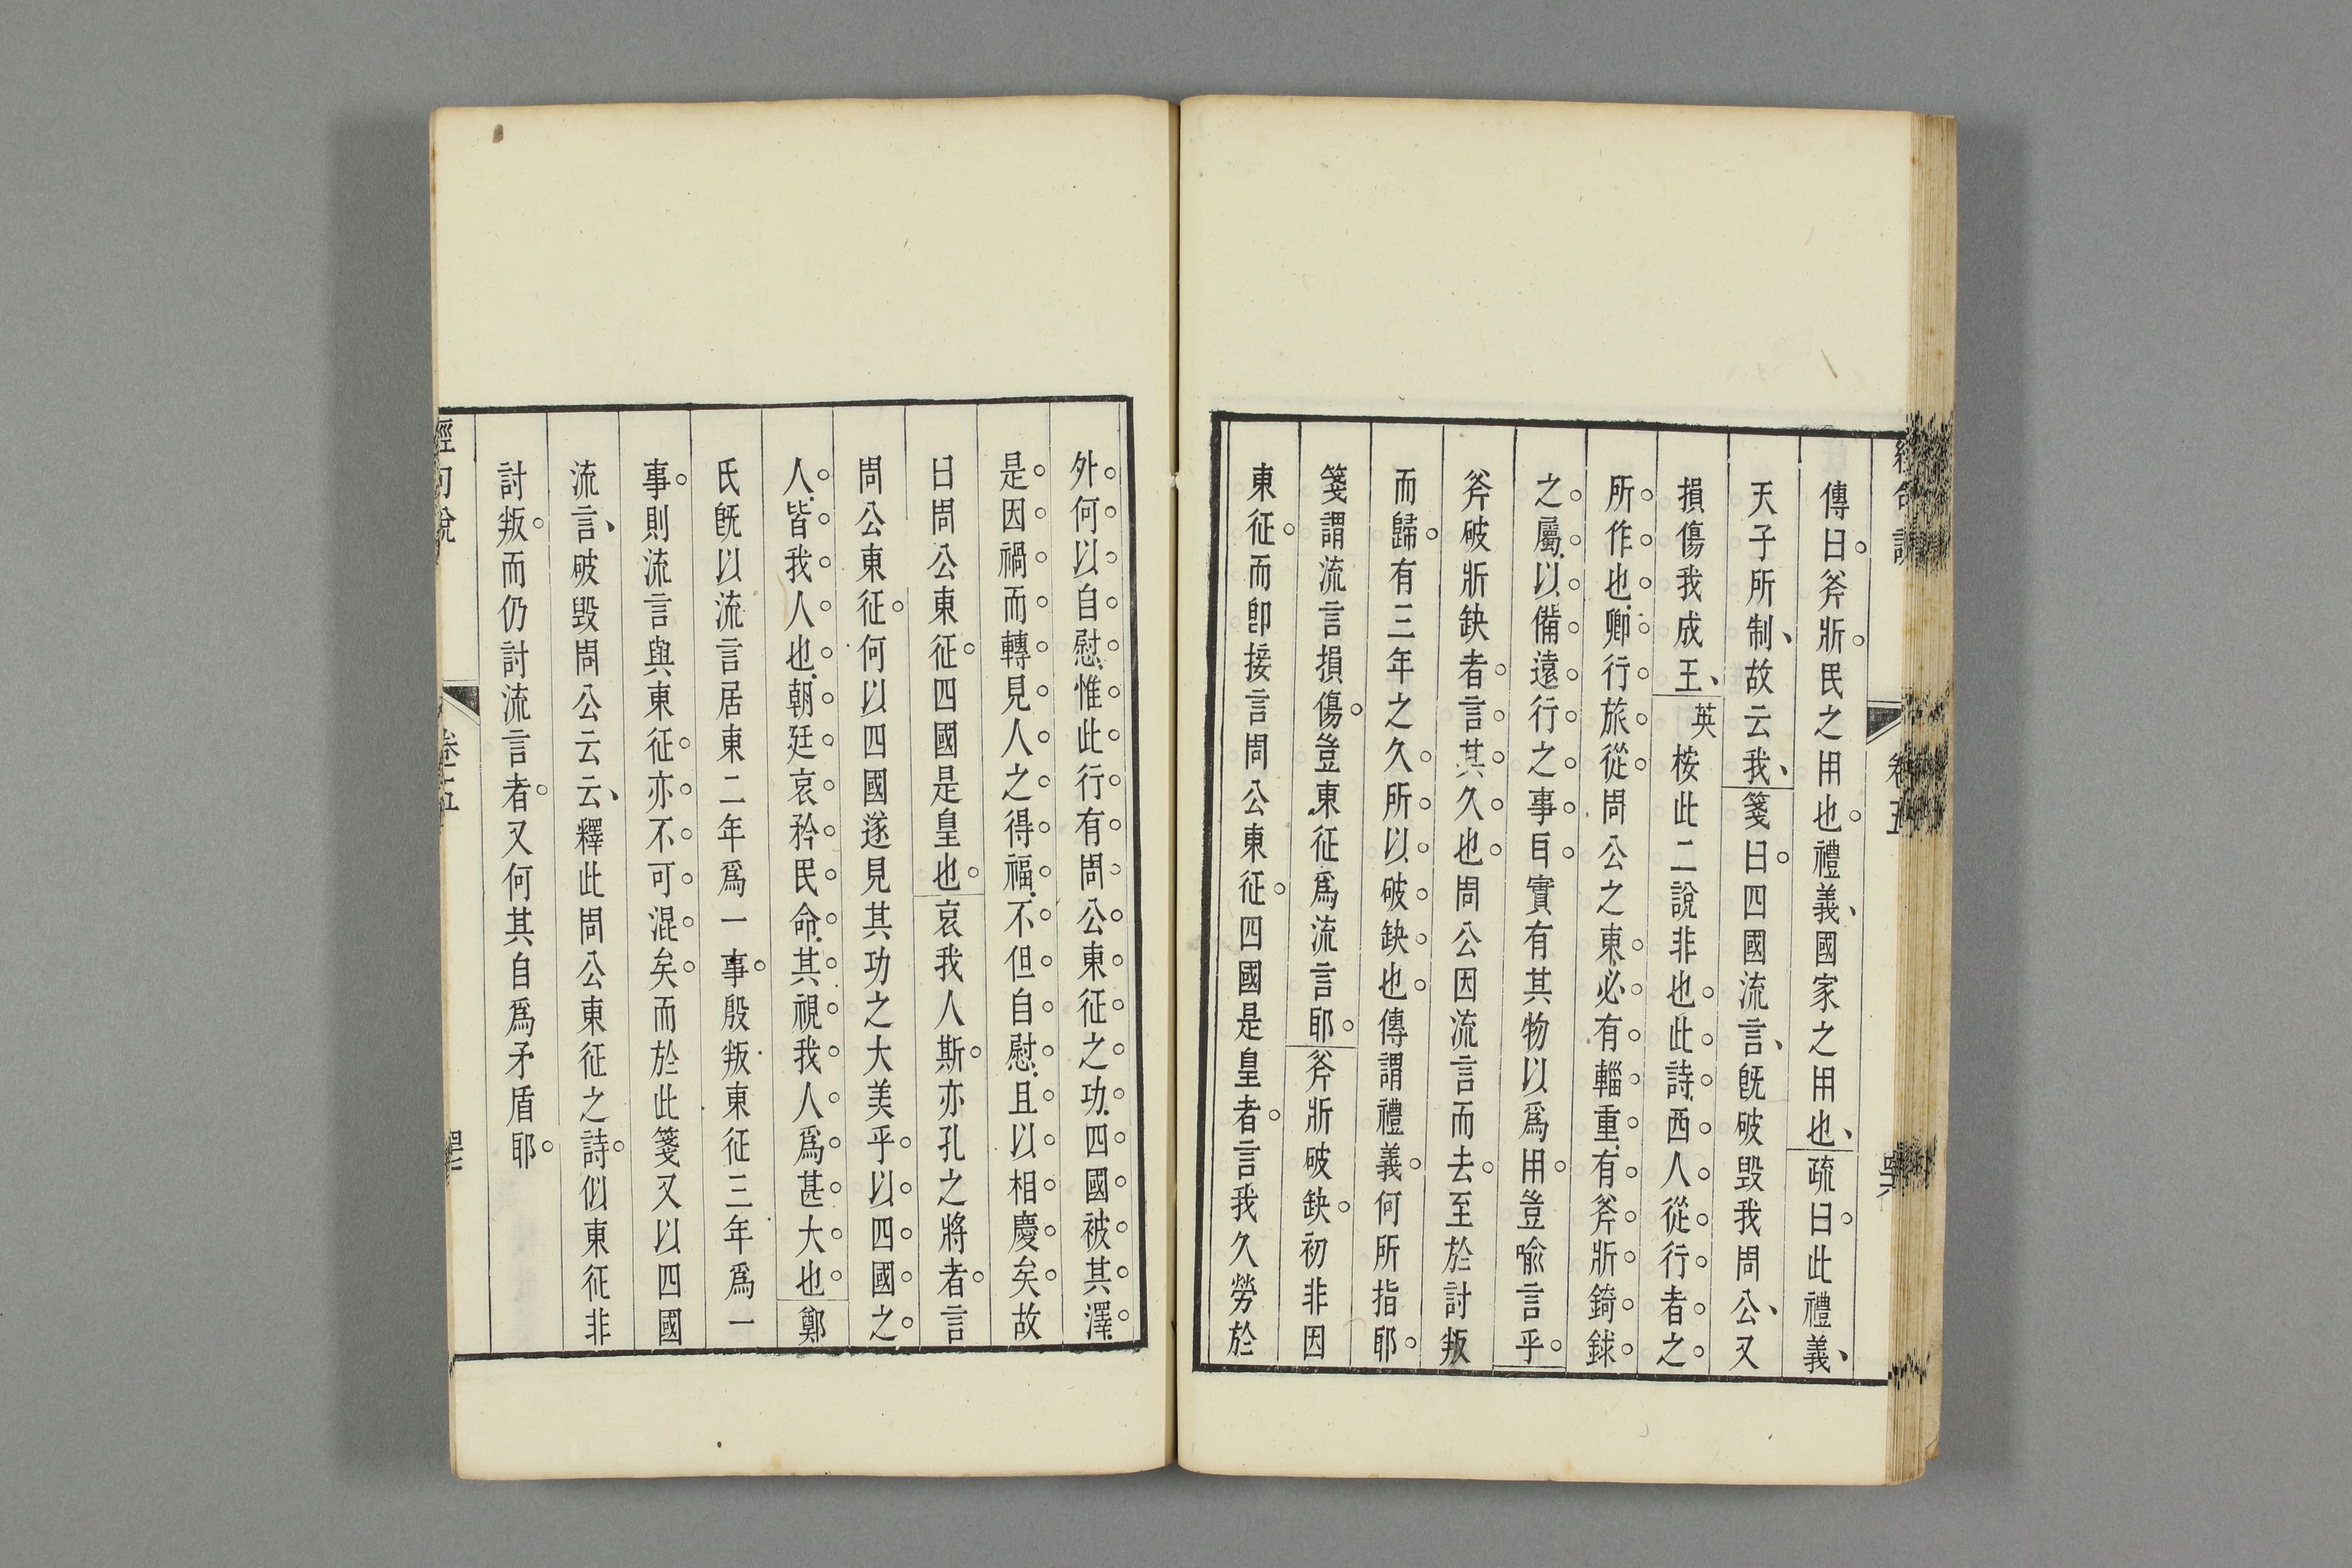 傳曰斧斨民之用也禮義國家之用也疏曰此禮義
天子所制故云我箋曰四國流言旣破毀我周公又
損傷我成王英桉此二說非也此詩西人從行者之
所作也卿行旅從周公之東必有輜重有斧斨錡銶
之屬以備遠行之事目實有其物以爲用豈喻言乎
斧破斨缺者言其久也周公因流言而去至於討叛
而歸有三年之久所以破缺也傳謂禮義何所指耶
箋謂流言損傷豈東征爲流言耶斧斨破缺初非因
東征而卽接言周公東征四國是皇者言我久勞於
外何以自慰惟此行有周公東征之功四國被其澤
是因禍而轉見人之得福不但自慰且以相慶矣故
曰周公東征四國是皇也哀我人斯亦孔之將者言
周公東征何以四國遂見其功之大美乎以四國之
人皆我人也朝廷哀矜民命其視我人爲甚大也鄭
氏旣以流言居東二年爲一事殷叛東征三年爲一
事則流言與東征亦不可混矣而於此箋又以四國
流言破毀周公云云釋此周公東征之詩似東征非
討叛而仍討流言者又何其自爲矛盾耶
經句說
卷十五